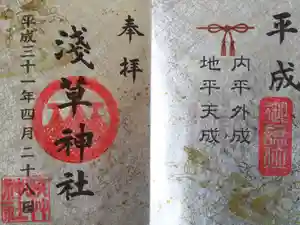 平成
内平外成
地平天成
奉拝
淺草神社
平成三十一年四月二十八日